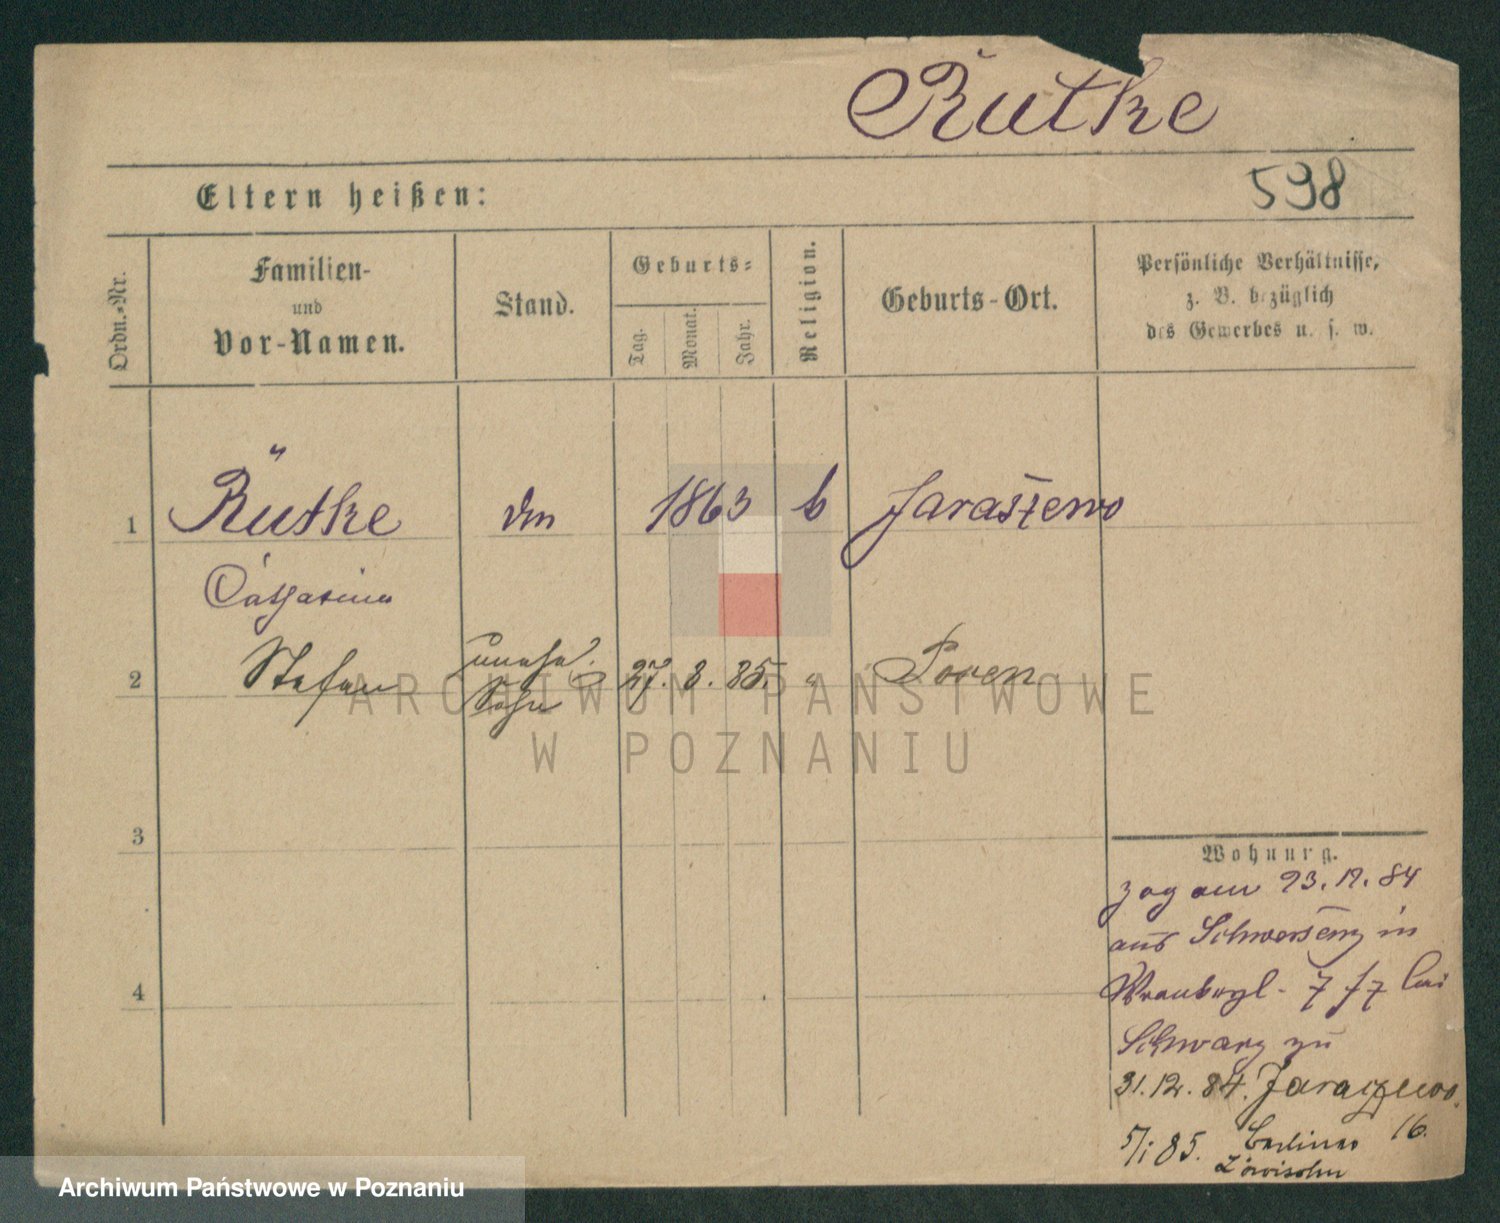 Rütke
Eltern heißen:
598
Ordn.-Nr.
Familien-
und
Vor-Namen.
Stand.
Geburts-
Tag.
Monat.
Jahr.
Religion.
Geburts-Ort.
Persönliche Verhältnisse,
z. B. bezüglich
des Gewerbes u. s. w.
1 Rütke 1863 Jaraszewo
Catharina
2 Stefan unehel. 27. 3. 85. " Posen
Sohn
3
4
Wohnung.
zog am 23.12.84
aus Schwersenz in
7 bei
Schwarz zu
31.12.84. Jaraczewo.
5/1 85. Berliner 16.
Löwisohn
ARCHIWUM PAŃSTWOWE
W POZNANIU
Archiwum Państwowe w Poznaniu